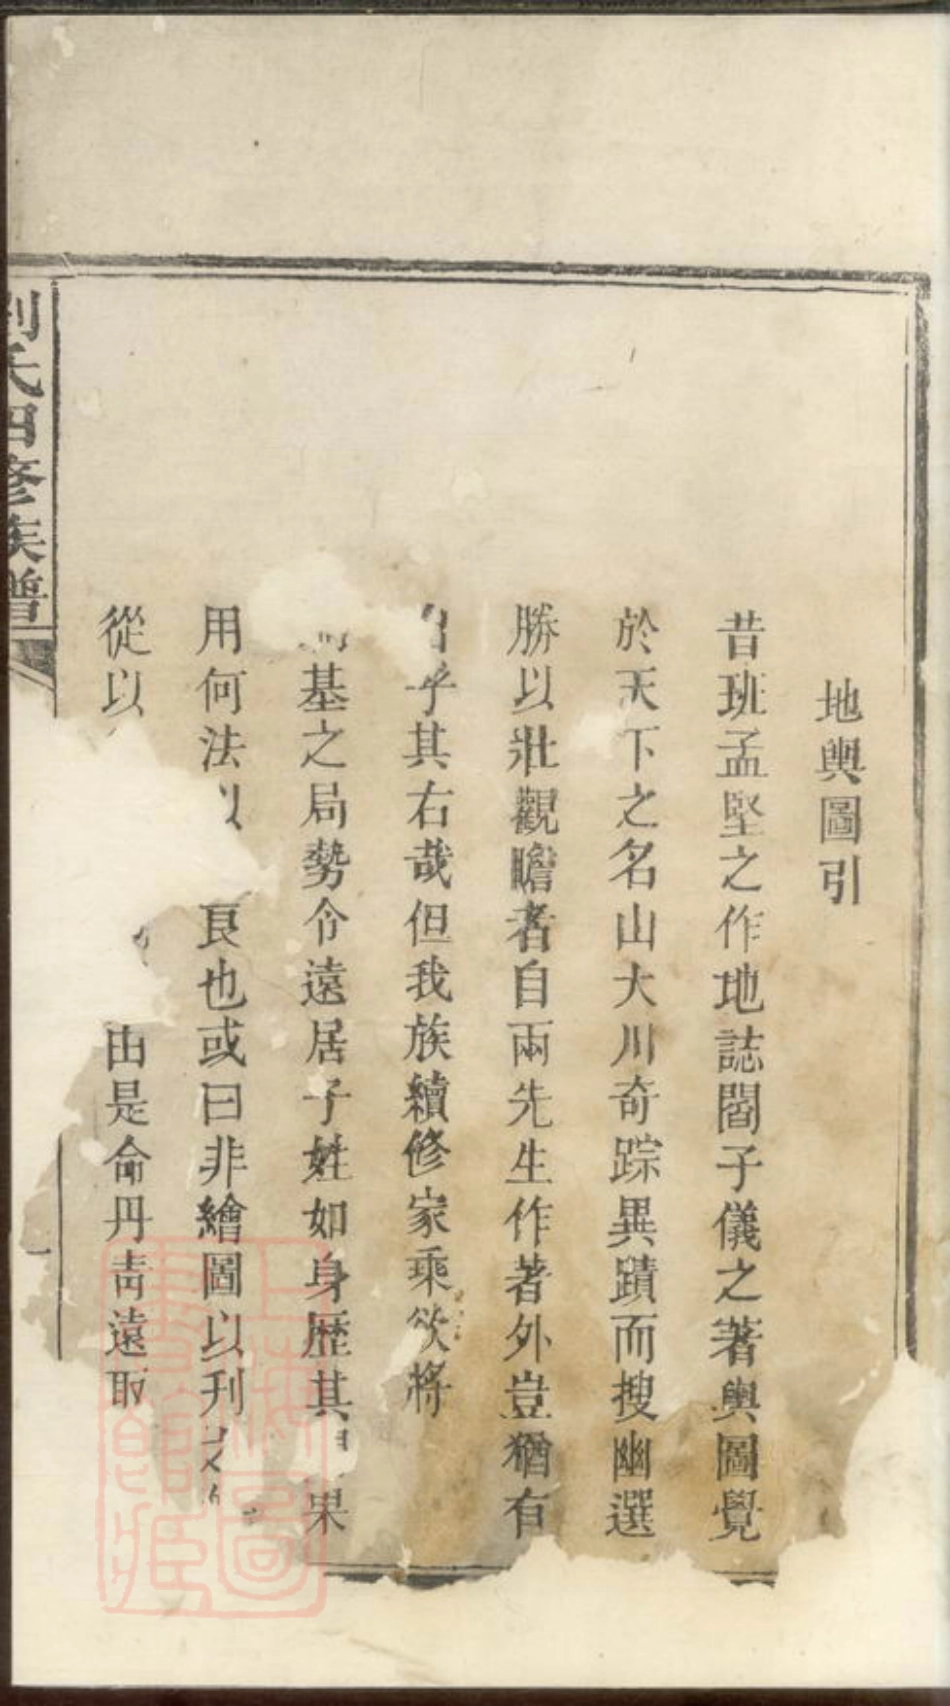 地輿圖引
昔班孟堅之作地誌閻子儀之著輿圖覺
於天下之名山大川奇踪異蹟而搜幽選
勝以壯觀瞻者自兩先生作著外豈猶有
乎其右哉但我族續修家乘欲將
基之局勢令遠居子姓如身歷其果
用何法以良也或曰非繪圖以刋
從以由是命丹青遠取
劉氏四修族譜
一
上海圖書館藏